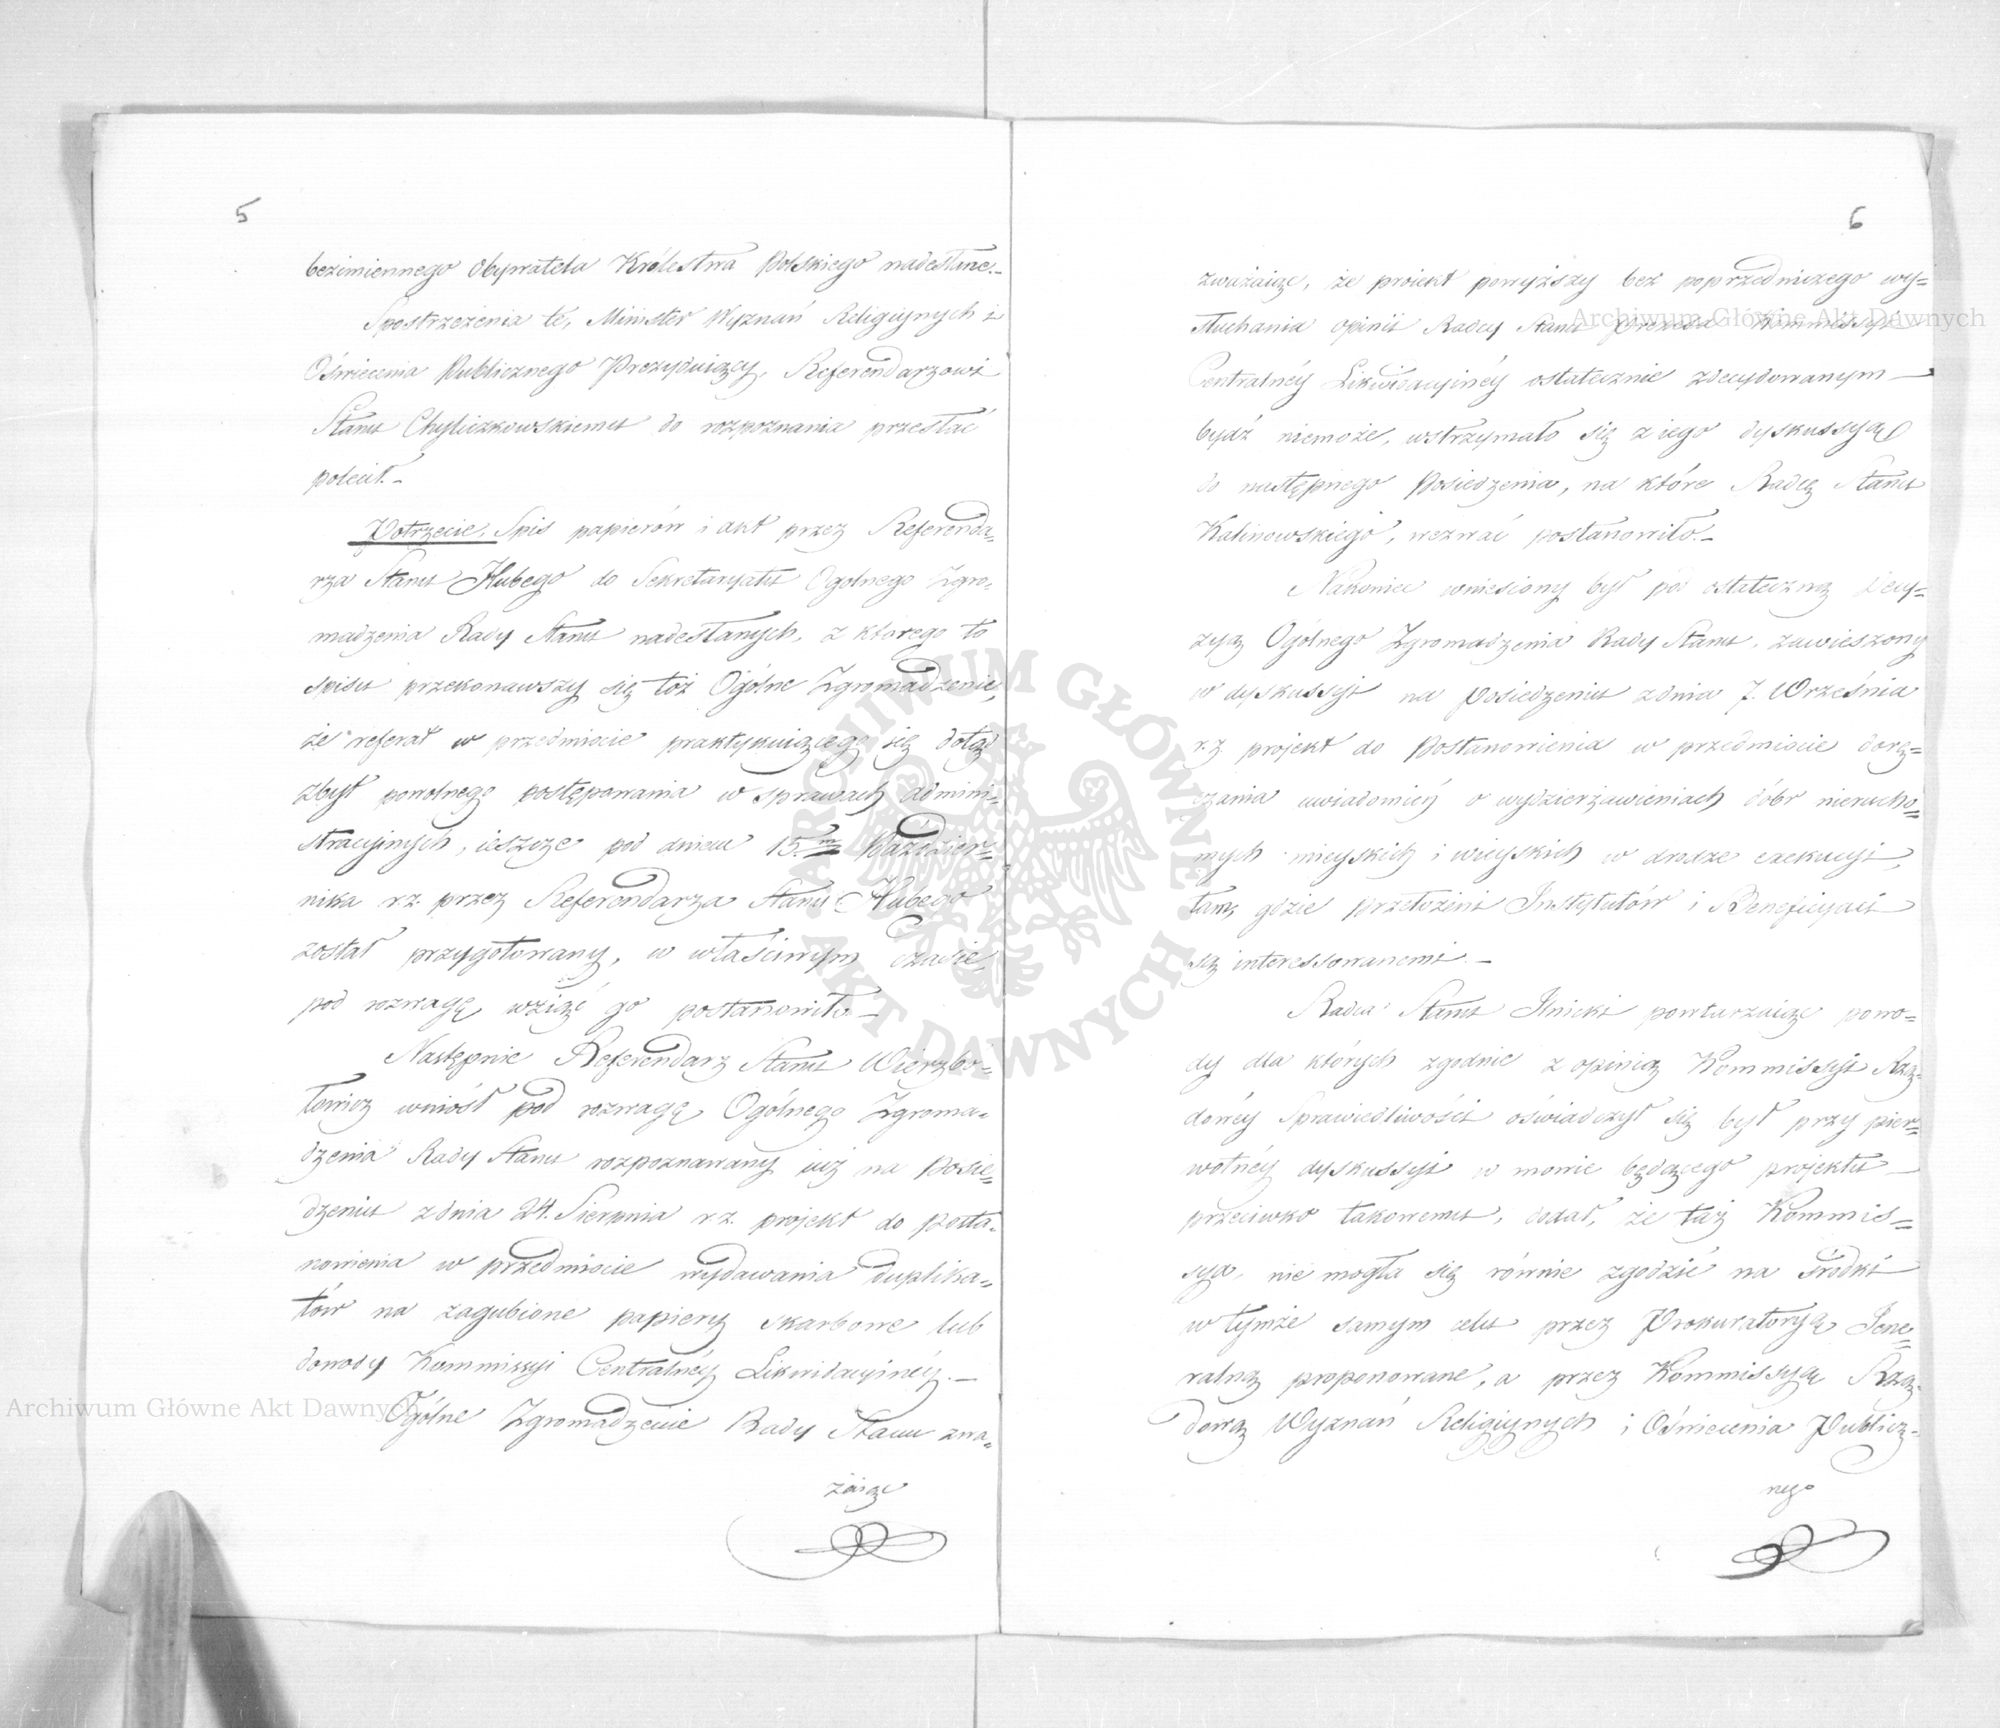 5
bezimiennego Obywatela Królestwa Polskiego nadesłane.–
Spostrzeżenia te, Minister Wyznań Religiynych i
Oświecenia Publicznego Prezyduiący, Referendarzowi
Stanu Chyliczkowskiemu do rozpoznania przesłać
polecił.–
Potrzecie, Spis papierów i akt przez Referenda=
rza Stanu Hubego do Sekretaryatu Ogolnego Zgro=
madzenia Rady Stanu nadesłanych, z którego to
spisu przekonawszy się toż Ogólne Zgromadzenie,
że referat w przedmiocie praktykuiącego się dotąd
zbyt powolnego postępowania w sprawach admini=
stracyinych, ieszcze pod dniem 15.m Paździer=
nika r.z. przez Referendarza Stanu Hubego
został przygotowany, w właściwym czasie,
pod rozwagę wziąć go postanowiło.–
Następnie Referendarz Stanu Wierzbo=
łowicz wniósł pod rozwagę Ogólnego Zgroma=
dzenia Rady Stanu rozpoznawany iuż na Posie=
dzeniu z dnia 24. Sierpnia r.z. projekt do posta=
nowienia w przedmiocie wydawania duplika=
tów na zagubione papiery skarbowe lub
dowody Kommissyi Centralnéy Likwidacyinéy.–
Ogólne Zgromadzenie Rady Stanu zwa=
żaiąc
6
zważaiąc, że proiekt powyższy bez poprzedniczego wy=
słuchania opinii Radcy Stanu Prezesa Kommissyi
Centralnéy Likwidacyinéy ostatecznie zdecydowanym
bydź niemoże, wstrzymało się z iego dyskussyą
do następnego Posiedzenia, na które Radcę Stanu
Kalinowskiego, wezwać postanowiło.–
Nakoniec wniesiony był pod ostateczną Decy=
zyą Ogólnego Zgromadzenia Rady Stanu, zawieszony
w dyskussyi na Posiedzeniu z dnia 7. Września
r.z. projekt do Postanowienia w przedmiocie dorę=
czania uwiadomień o wydzierżawieniach dóbr nierucho=
mych mieyskich i wieyskich w drodze exekucyi,
tam, gdzie przełożeni Instytutów i Beneficyaci
są interessowanemi.–
Radca Stanu Ilnicki powtarzaiąc powo=
dy dla których zgodnie z opinią Kommissyi Rzą=
dowéy Sprawiedliwości oświadczył się był przy pier=
wotnéy dyskussyi w mowie będącego projektu
przeciwko takowemu, dodał, że taż Kommis=
sya, nie mogła się równie zgodzić na środki
w tymże samym celu przez Prokuratoryą Jene=
ralną proponowane, a przez Kommissyą Rzą=
dową Wyznań Religiynych i Oświecenia Publicz=
nego
Archiwum Główne Akt Dawnych
© Archiwum Główne Akt Dawnych
ARCHIWUM GŁÓWNE AKT DAWNYCH